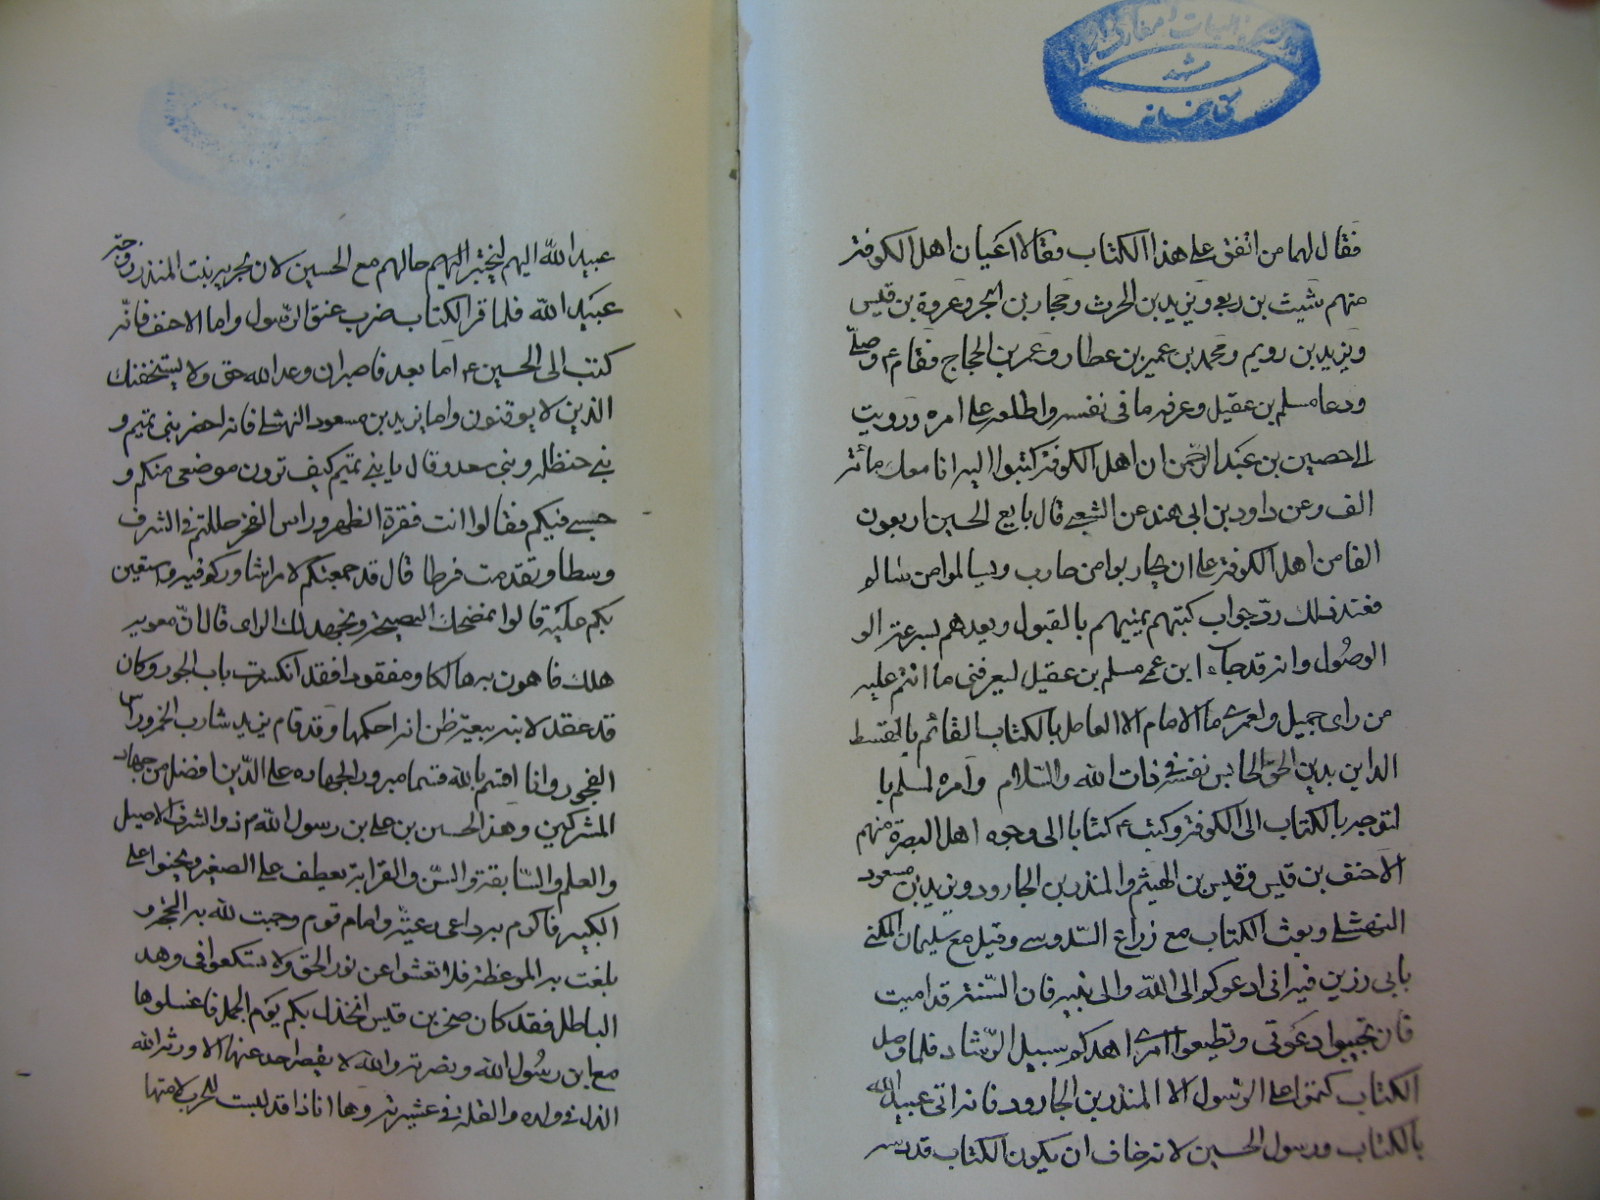 دانشکده الهیات و معارف اسلامی
مشهد
کتابخانه
فقال لهما من اتفق على هذا الكتاب فقالا اعيان اهل الكوفة
منهم شبث بن ربعي ويزيد بن الحرث وحجار بن ابجر وعروة بن قيس
ويزيد بن رويم ومحمد بن عمير بن عطارد وعمر بن الحجاج فقام ع وصلى
ودعا مسلم بن عقيل وعرفه ما في نفسه واطلعه على امره ورويت
الى حصين بن عبد الرحمن ان اهل الكوفة كتبوا اليه انا معك مائة
الف وعن داود بن ابى هند عن الشعبي قال بايع الحسين اربعون
الفا من اهل الكوفة على ان يحاربوا من حارب ويسالموا من سالم
فعند ذلك رد جواب كتبهم يمنيهم بالقبول ويعدهم بسرعة الو
الوصول وانه قد جاء ابن عمي مسلم بن عقيل ليعرفنى ما انتم عليه
من راى جميل ولعمري ما الامام الا العامل بالكتاب القائم بالقسط
الداين بدين الحق الحابس نفسه في ذات الله والسلام وامره لمسلم با
لتوجه بالكتاب الى الكوفة وكتب ع كتابا الى وجوه اهل البصرة منهم
الاحنف بن قيس وقيس بن الهيثم والمنذر بن الجارود ويزيد بن مسعود
النهشلي وبعث الكتاب مع زراع السدوسي وقيل مع سليمان المكنى
بابى رزين فيه انى ادعوكم الى الله والى نبيه فان السنة قد اميت
فان تجيبوا دعوتى وتطيعوا امري اهدكم سبيل الرشاد فلما وصل
الكتاب كتموا على الرسول الا المنذر بن الجارود فانه اتى عبيد الله
بالكتاب ورسول الحسين لانه خاف ان يكون الكتاب قد دسه
عبيد الله اليهم ليختبر اليهم حالهم مع الحسين لان بحريه بنت المنذر زوجة
عبيد الله فلما قرا الكتاب ضرب عنق الرسول واما الاحنف فانه
كتب الى الحسين ع اما بعد فاصبر ان وعد الله حق ولا يستخفنك
الذين لا يوقنون واما يزيد بن مسعود النهشلي فانه احضر بنى تميم و
بني حنظله وبنى سعد وقال يا بني تميم كيف ترون موضعى منكم و
حسبي فيكم فقالوا انت فقرة الظهر وراس الفخر حللت في الشرف
وسطا وتقدمت فرطا قال قد جمعتكم لامر اشاوركم فيه واستعين
بكم عليه قالوا نمنحك النصيحة ونجهد لك الراى قال ان معويه
هلك فاهون به هالكا ومفقودا فقد انكسرت باب الجور وكان
قد عقد لابنه بيعة ظن انه احكمها وقد قام يزيد شارب الخمر وراس
الفجور وانا اقسم بالله قسما مبرورا لجهاده على الدين افضل من جهاد
المشركين وهذا الحسين بن على بن رسول الله ص ذو الشرف الاصيل
والعلم والسابقة والسن والقرابة يعطف على الصغير ويحنوا على
الكبير فاكرم به داعى رعية وامام قوم وجبت لله به الحجة و
بلغت به الموعظة فلا تعشوا عن نور الحق ولا تسكعوا فى وهد
الباطل فقد كان صخر بن قيس انخذل بكم يوم الجمل فاغسلوها
مع ابن رسول الله ونصرته والله لا يقصر احد عنها الا ورثه الله
الذل في ولده والقلة في عشيرته وها انا ذا قد لبست للحرب لامتها